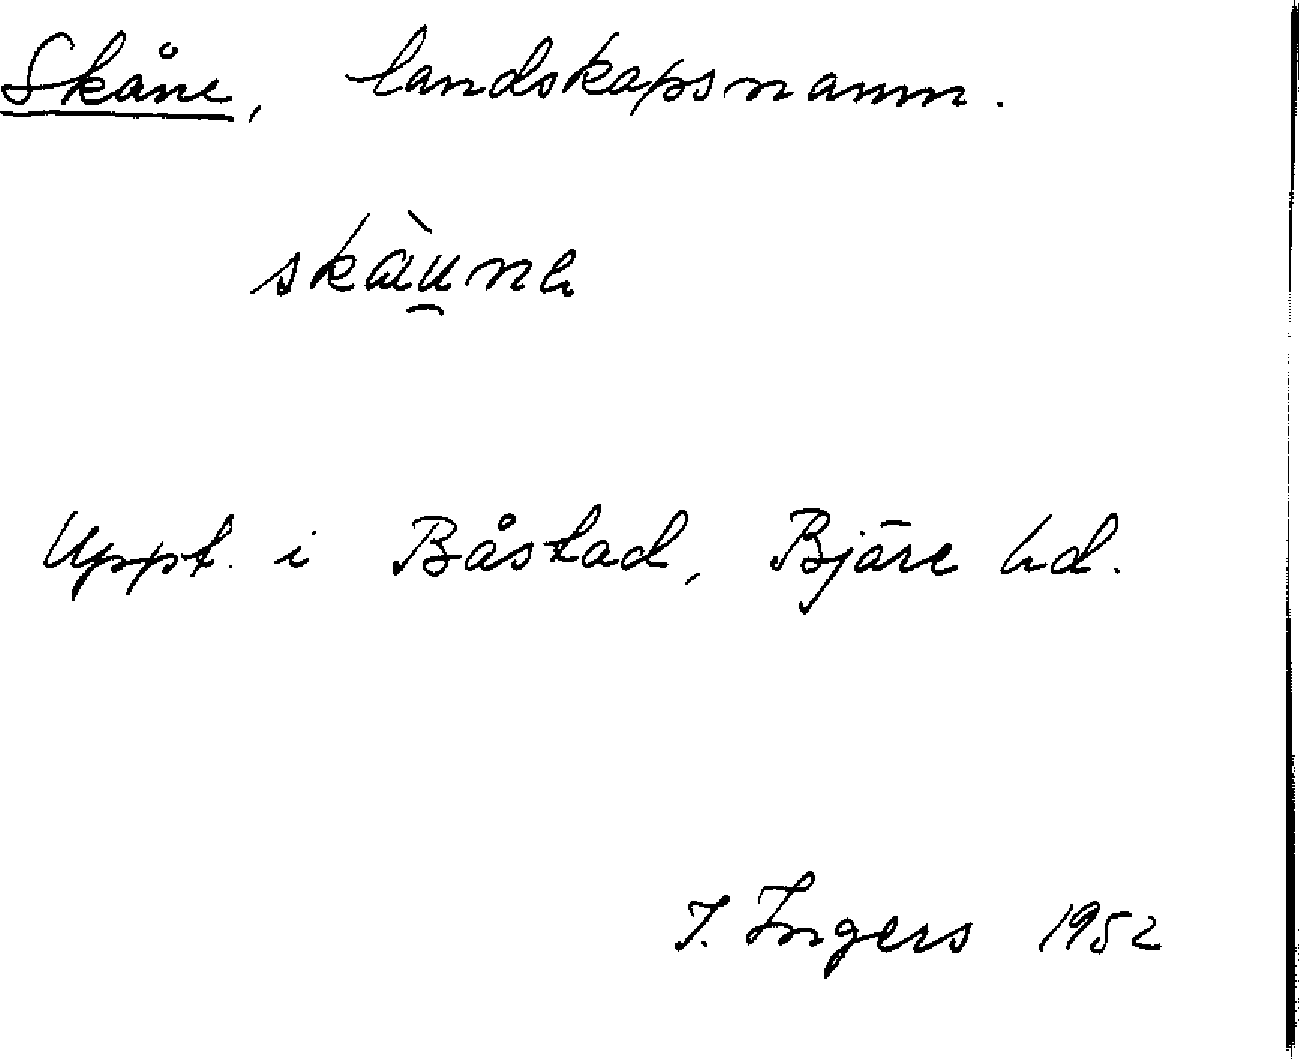 Skåne, landskapsnamn.
skàu̯na
Uppt. i Båstad, Bjäre hd.
I. Ingers 1952